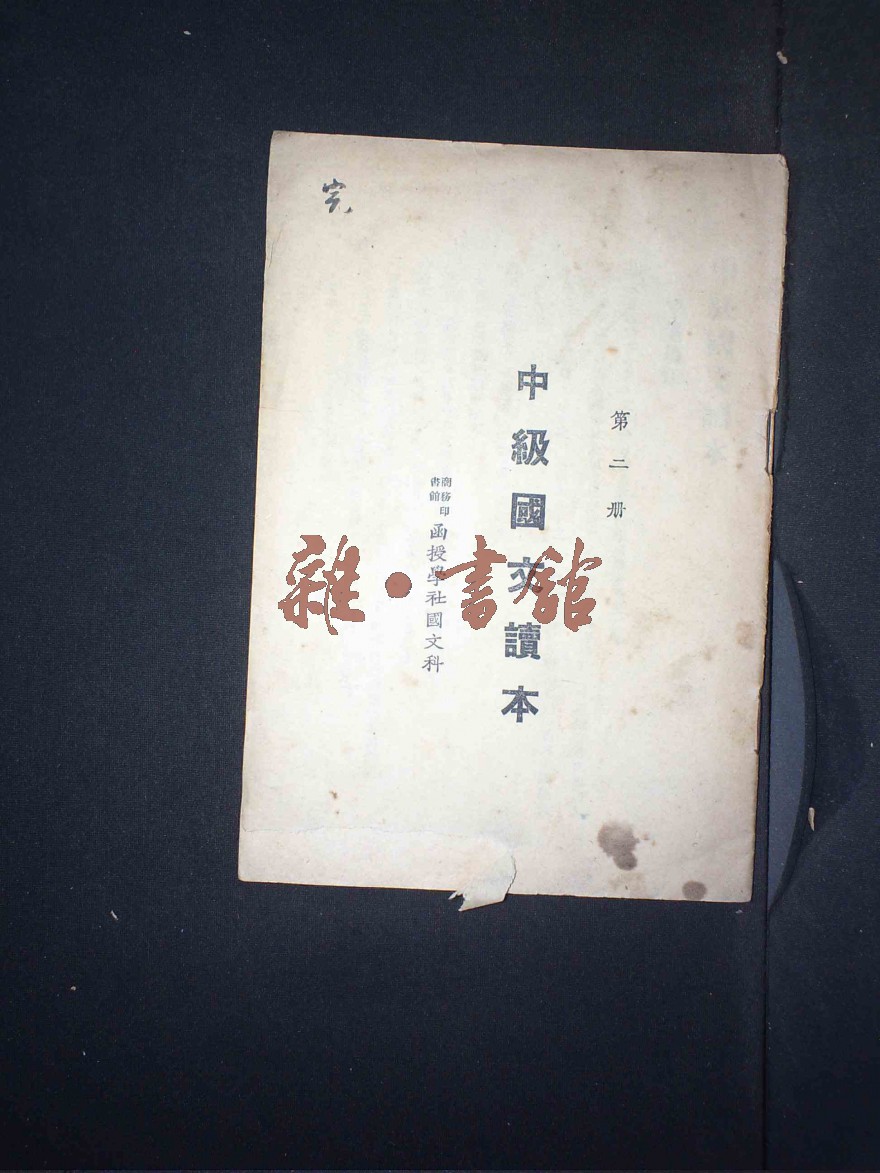 第二册
中級國文讀本
商務印書館
函授學社國文科
完
雜·書館